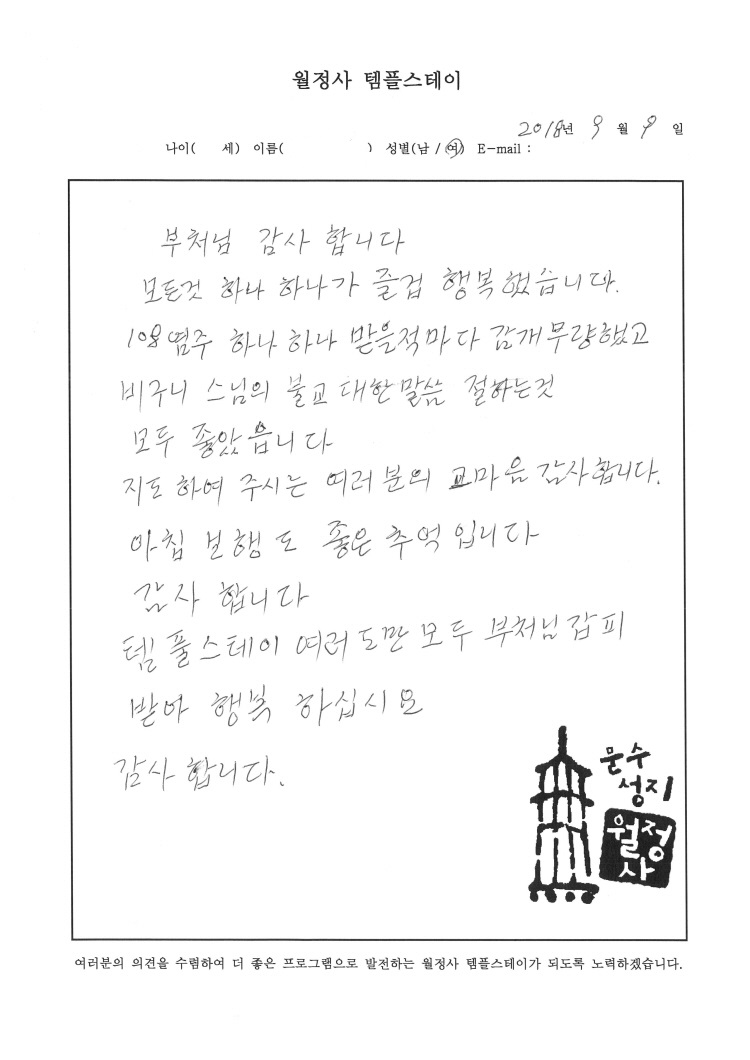 월정사 템플스테이
2018년 9 월 9 일
나이( 세) 이름( ) 성별(남 / 여) E-mail :
부처님 감사 합니다
모든것 하나 하나가 즐겁 행복했습니다.
108염주 하나 하나 받을적마다 감개무량했고
비구니 스님의 불교 대한말씀 절하는것
모두 좋았읍니다
지도 하여 주시는 여러분의 고마음 감사합니다.
아침 보행도 좋은 추억입니다
감사 합니다
템풀스테이 여러도만 모두 부처님갑피
받아 행복 하십시요
감사합니다.
문수
성지
월정
사
여러분의 의견을 수렴하여 더 좋은 프로그램으로 발전하는 월정사 템플스테이가 되도록 노력하겠습니다.